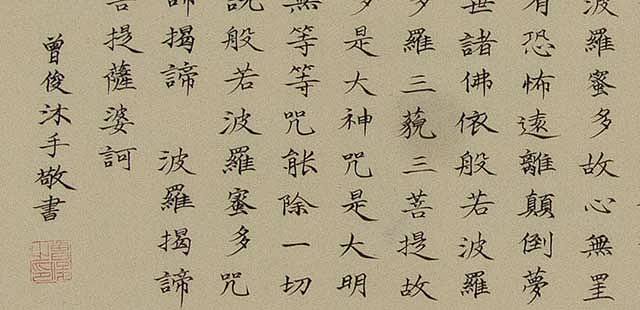 波羅蜜多故心無罣
有恐怖遠離顛倒夢
世諸佛依般若波羅
多羅三藐三菩提故
多是大神咒是大明
無等等咒能除一切
說般若波羅蜜多咒
諦揭諦 波羅揭諦
菩提薩婆訶
曾俊沐手敬書